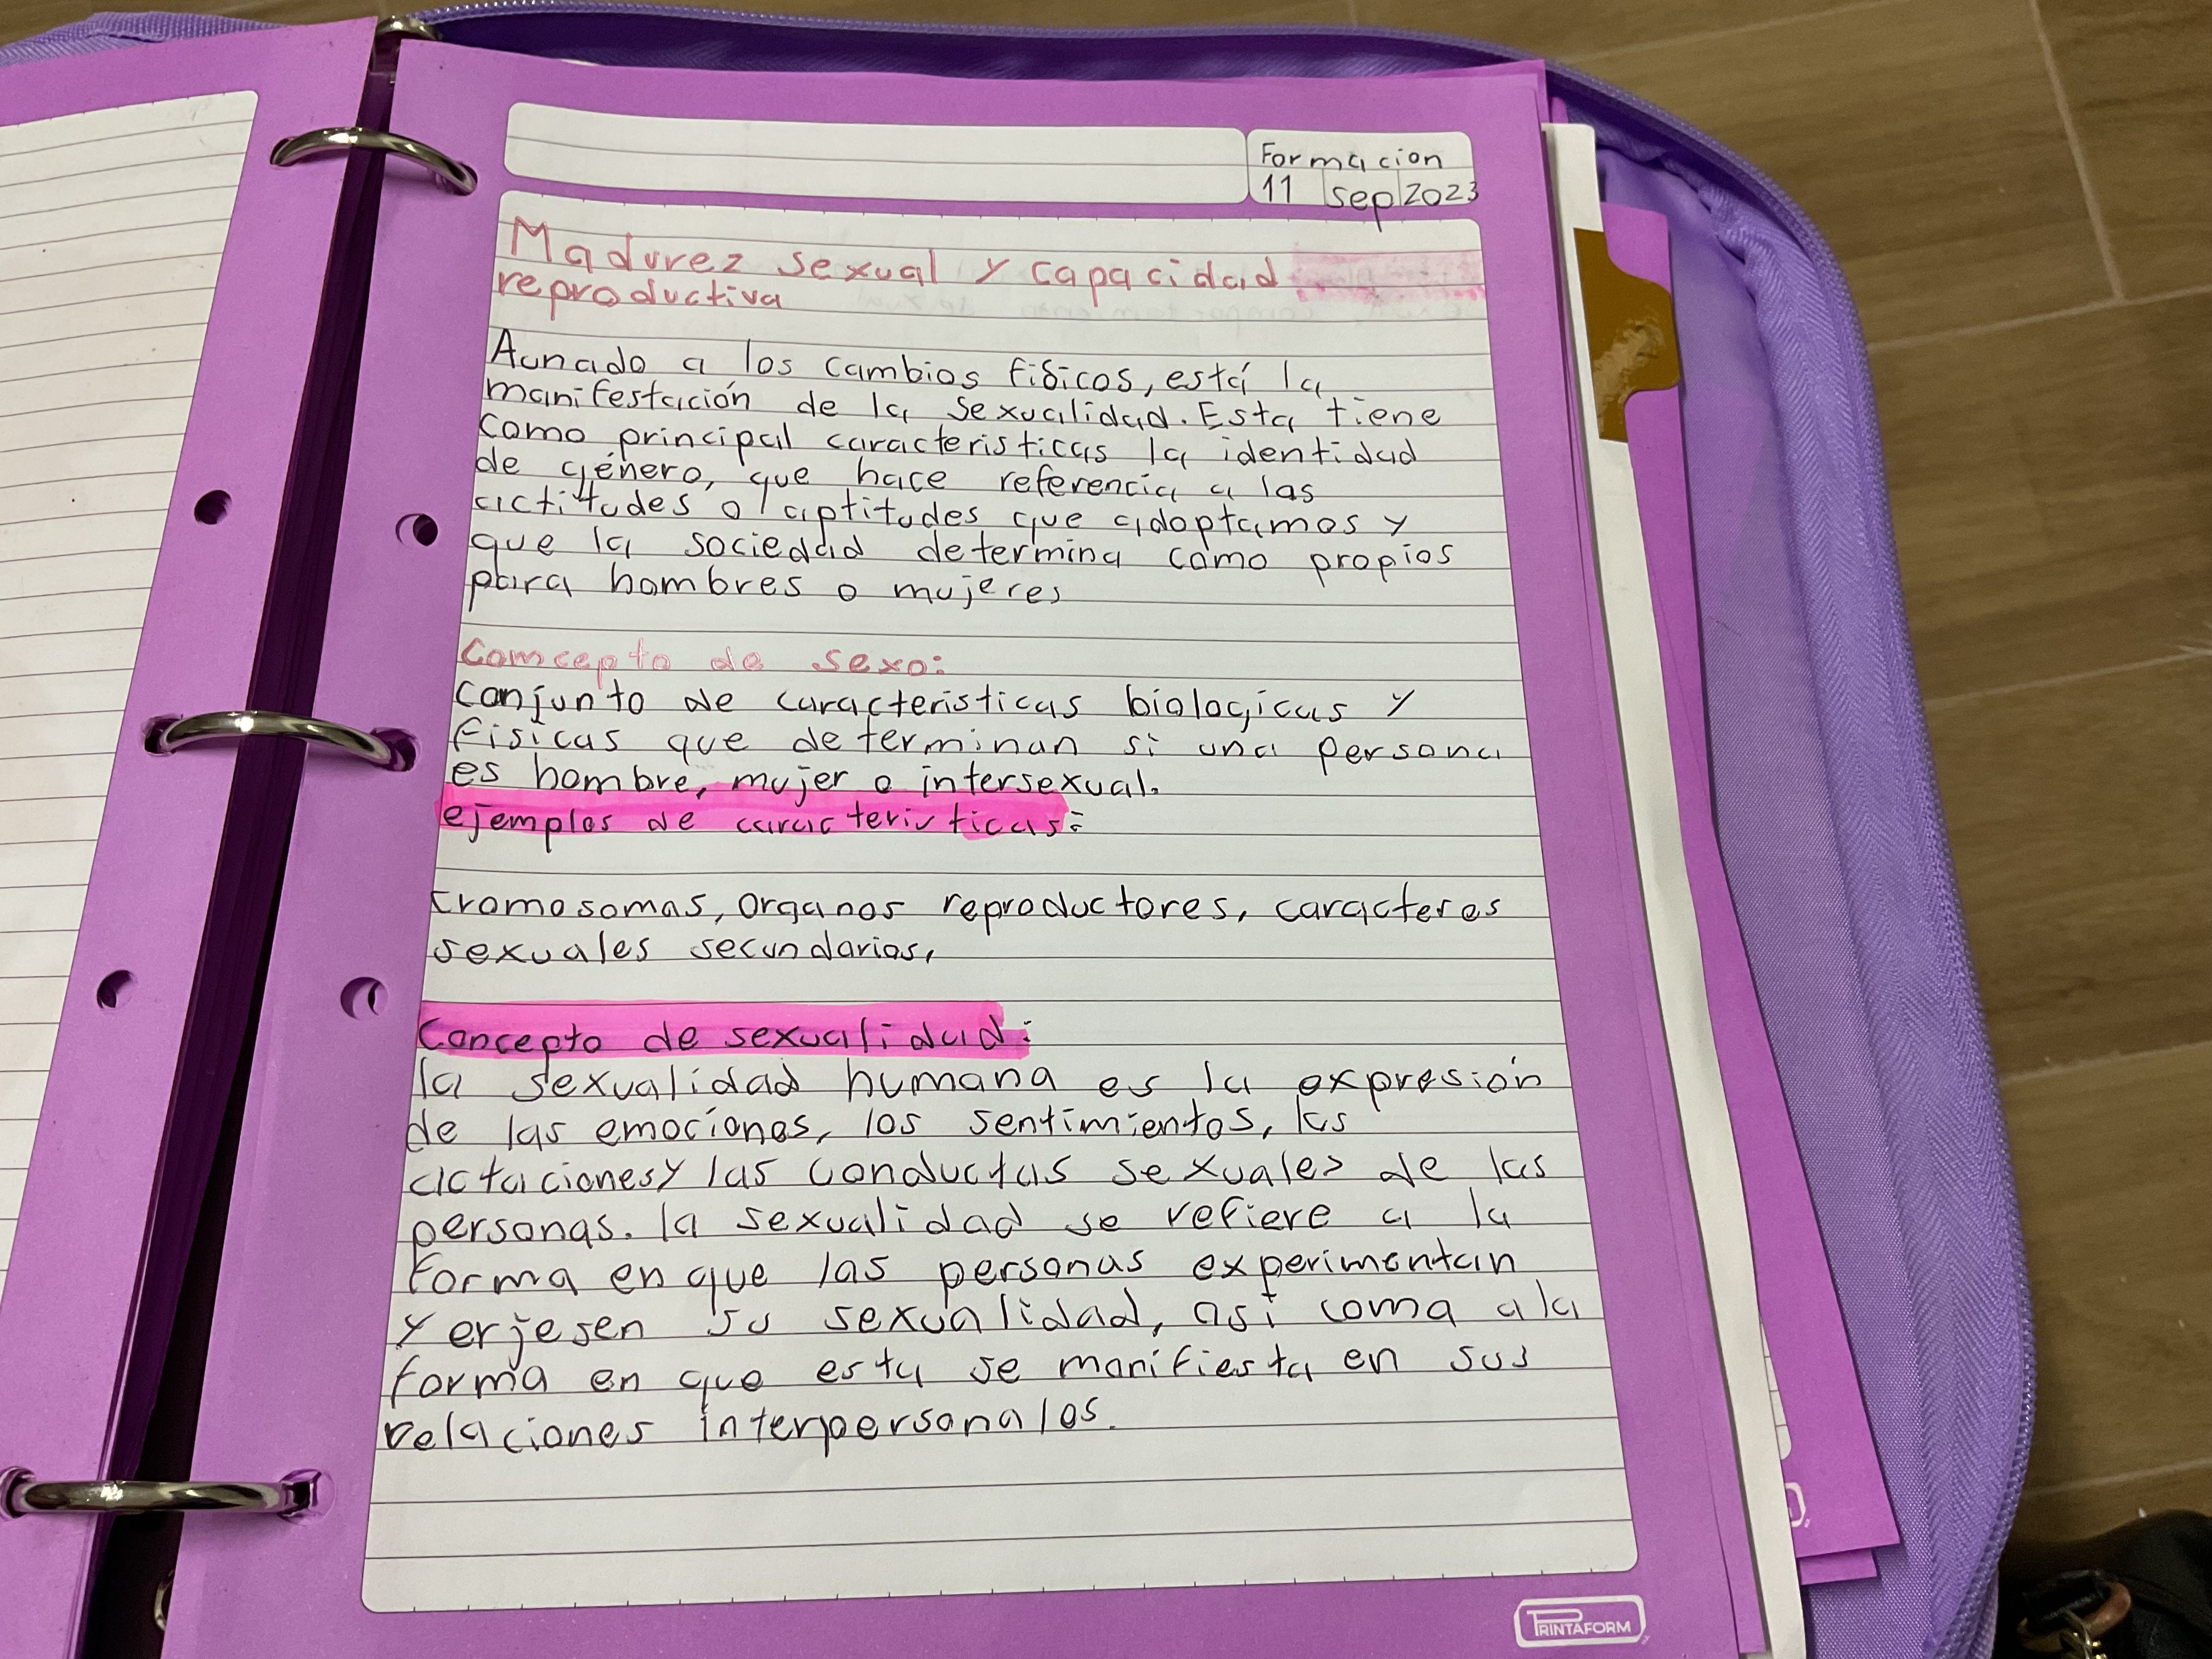 Formacion
11 sep 2023
Madurez sexual y capacidad
reproductiva
Aunado a los cambios fisicos, está la
manifestación de la sexualidad. Esta tiene
como principal caracteristicas la identidad
de género, que hace referencia a las
actitudes o aptitudes que adoptamos y
que la sociedad determina como propios
para hombres o mujeres
Comcepto de sexo:
conjunto de caracteristicas biologicas y
fisicas que determinan si una persona
es hombre, mujer o intersexual.
ejemplos de caracteristicas:
cromosomas, organos reproductores, caracteres
sexuales secundarios,
Concepto de sexualidad:
la sexualidad humana es la expresión
de las emociones, los sentimientos, las
actaciones y las conductas sexuales de las
personas. la sexualidad se refiere a la
forma en que las personas experimentan
y erjesen su sexualidad, asi coma a la
forma en que esta se manifiesta en sus
relaciones interpersonales.
PRINTAFORM